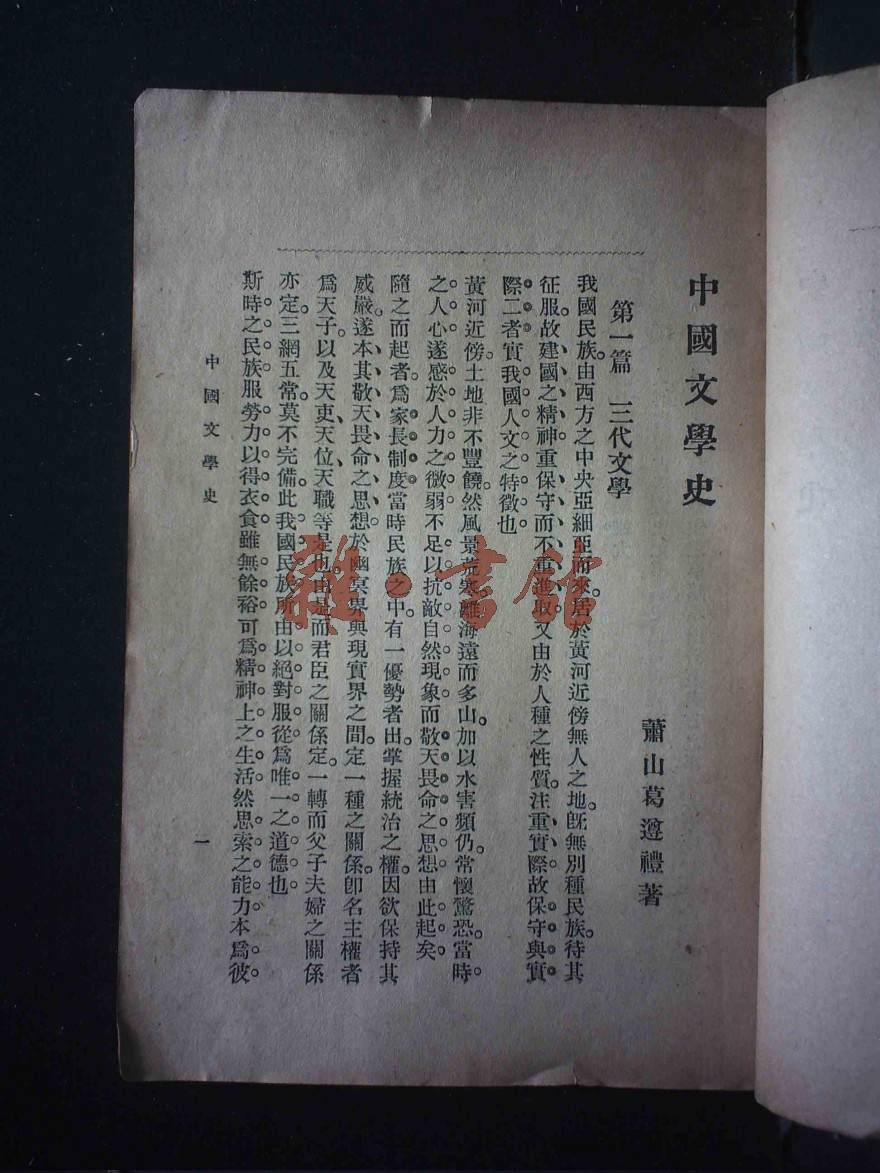 中國文學史
蕭山葛遵禮著
第一篇　三代文學
我國民族。由西方之中央亞細亞而來。居於黃河近傍無人之地。旣無別種民族。待其
征服。故建國之精神。重保守而不重進取。又由於人種之性質。注重實際。故保守與實
際二者。實我國人文之特徵也
黃河近傍。土地非不豐饒。然風景荒寒。離海遠而多山。加以水害頻仍。常懷驚恐。當時
之人心。遂感於人力之微弱。不足以抗敵自然現象。而敬天畏命之思想。由此起矣
隨之而起者。爲家長制度。當時民族之中。有一優勢者出。掌握統治之權。因欲保持其
威嚴。遂本其敬天畏命之思想。於幽冥界與現實界之間。定一種之關係。卽名主權者
爲天子。以及天吏、天位、天職等是也。由是而君臣之關係定。一轉而父子夫婦之關係
亦定。三網五常。莫不完備。此我國民族所由以絕對服從爲唯一之道德也
斯時之民族。服勞力以得衣食。雖無餘裕。可爲精神上之生活。然思索之能力。本爲彼
中國文學史
一
雜·書館